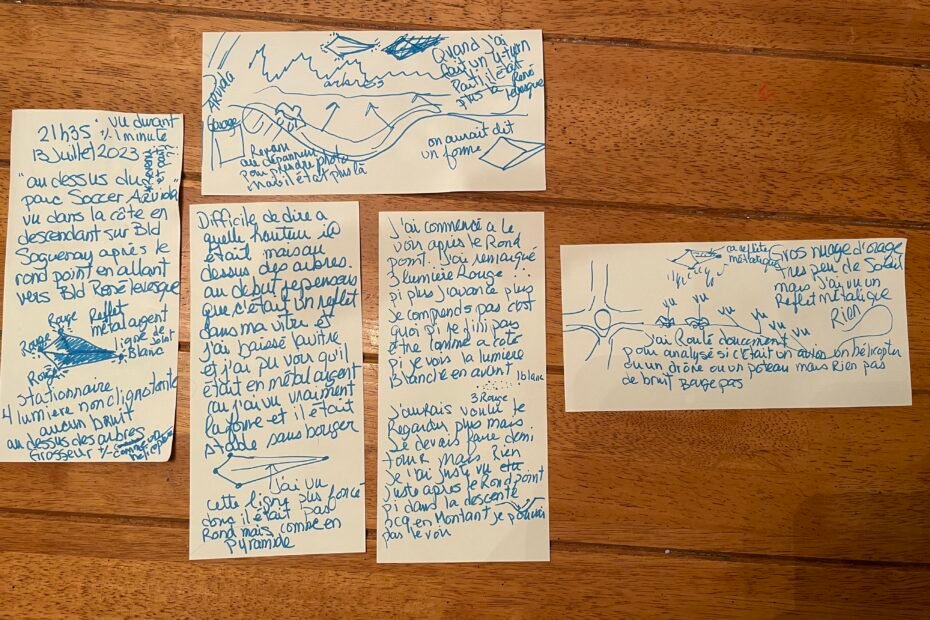 21h35 vu durant
+/- 1 minute
13 Juillet 2023
"au dessus du
parc Soccer Arvida
vu dans la côte en
descendant sur Bld
Saguenay après le
rond point en allant
vers Bld René Levesque
Rouge Reflet
métal argent
Rouge
ligne de
Blanc
Rouge
Stationnaire
4 lumière non clignotante
aucun bruit
au dessus des arbres
Grosseur +/- comme un
helicoptère
Arvida
Garage
arbres
Quand j'ai
fait un U-turn
Parti il était
plus là
René
Levesque
Revenu
au dépanneur
pour prendre photo
mais il était plus là
on aurait dit
un forme
Difficile de dire a
quelle hauteur
était mais au
dessus des arbres.
au début je pensais
que c'était un reflet
dans ma vitre et
j'ai baissé la vitre
et j'ai pu voir qu'il
était en métal argent
car j'ai vu vraiment
la forme et il était
stable sans bouger
j'ai vu
cette ligne plus foncé
donc il était pas
Rond mais comme en
pyramide
J'ai commencé a le
voir après le Rond
point. J'ai remarqué
3 lumière Rouge
pi plus j'avance plus
je comprends pas c'est
quoi pi je fini pas
être comme a côté
pi je vois la lumière
Blanche en avant
1 blanc
3 Rouge
J'aurais voulu le
Regarder plus mais
je devais faire demi
tour mais Rien
je l'ai juste vu
juste après le Rond point
pi dans la descente
en Montant je pouvais
pas le voir
ca reflète
métalique
Gros nuage d'orage
Tres peu de Soleil
mais j'ai vu un
Reflet métalique
Rien
vu vu vu vu vu
J'ai Roulé doucement
pour analysé si c'était un avion un hélicopter
ou un drône ou un poteau mais Rien pas
de bruit Bouge pas